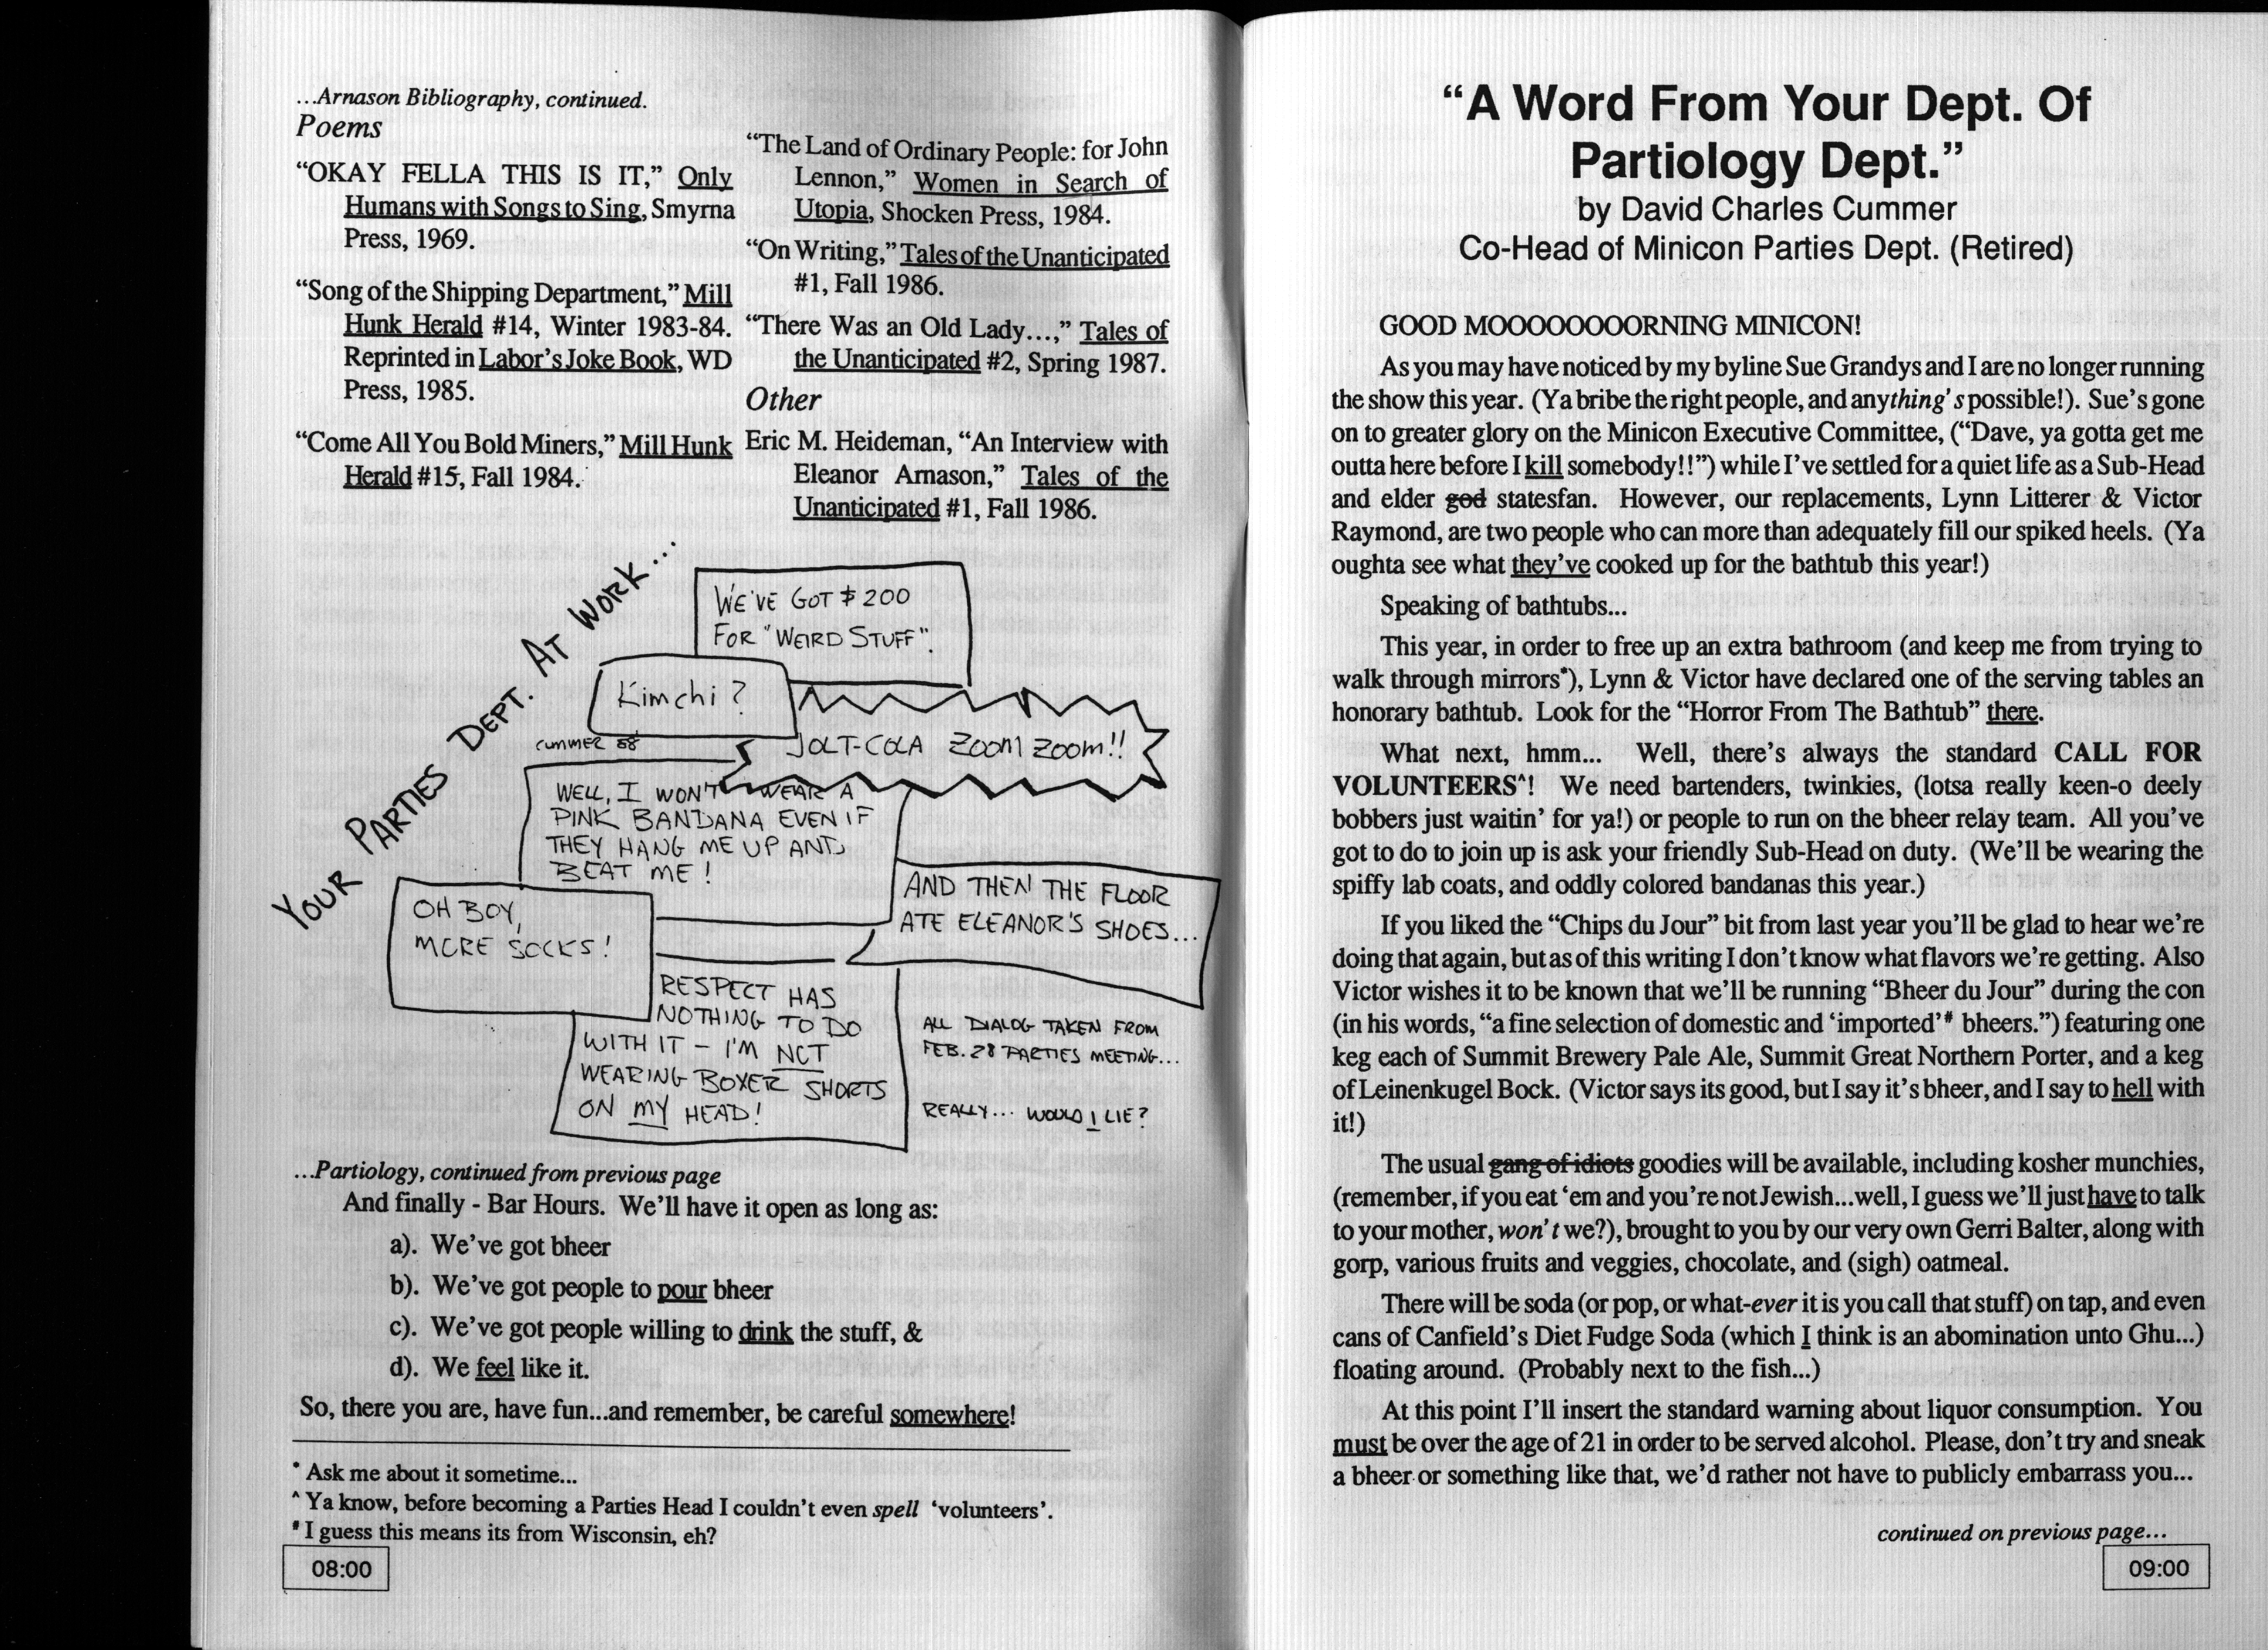 ...Arnason Bibliography, continued.
Poems
“OKAY FELLA THIS IS IT,” Only
Humans with Songs to Sing, Smyrna
Press, 1969.
“Song of the Shipping Department,” Mill
Hunk Herald #14, Winter 1983-84.
Reprinted in Labor’s Joke Book, WD
Press, 1985.
“Come All You Bold Miners,” Mill Hunk
Herald #15, Fall 1984.
“The Land of Ordinary People: for John
Lennon,” Women in Search of
Utopia, Shocken Press, 1984.
“On Writing,” Tales of the Unanticipated
#1, Fall 1986.
“There Was an Old Lady...,” Tales of
the Unanticipated #2, Spring 1987.
Other
Eric M. Heideman, “An Interview with
Eleanor Arnason,” Tales of the
Unanticipated #1, Fall 1986.
YOUR PARTIES DEPT. AT WORK...
WE'VE GOT $200
FOR "WEIRD STUFF".
Kimchi?
CUMMER 88
JOLT-COLA ZOOM ZOOM!!
WELL, I WON'T WEAR A
PINK BANDANA EVEN IF
THEY HANG ME UP AND
BEAT ME!
OH BOY,
MORE SOCKS!
AND THEN THE FLOOR
ATE ELEANOR'S SHOES...
RESPECT HAS
NOTHING TO DO
WITH IT - I'M NOT
WEARING BOXER SHORTS
ON MY HEAD!
ALL DIALOG TAKEN FROM
FEB. 28 PARTIES MEETING...
REALLY... WOULD I LIE?
...Partiology, continued from previous page
And finally - Bar Hours. We’ll have it open as long as:
a). We’ve got bheer
b). We’ve got people to pour bheer
c). We’ve got people willing to drink the stuff, &
d). We feel like it.
So, there you are, have fun...and remember, be careful somewhere!
* Ask me about it sometime...
^ Ya know, before becoming a Parties Head I couldn’t even spell ‘volunteers’.
# I guess this means its from Wisconsin, eh?
08:00
“A Word From Your Dept. Of
Partiology Dept.”
by David Charles Cummer
Co-Head of Minicon Parties Dept. (Retired)
GOOD MOOOOOOOORNING MINICON!
As you may have noticed by my byline Sue Grandys and I are no longer running
the show this year. (Ya bribe the right people, and anything’s possible!). Sue’s gone
on to greater glory on the Minicon Executive Committee, (“Dave, ya gotta get me
outta here before I kill somebody!!”) while I’ve settled for a quiet life as a Sub-Head
and elder god statesfan. However, our replacements, Lynn Litterer & Victor
Raymond, are two people who can more than adequately fill our spiked heels. (Ya
oughta see what they’ve cooked up for the bathtub this year!)
Speaking of bathtubs...
This year, in order to free up an extra bathroom (and keep me from trying to
walk through mirrors*), Lynn & Victor have declared one of the serving tables an
honorary bathtub. Look for the “Horror From The Bathtub” there.
What next, hmm... Well, there’s always the standard CALL FOR
VOLUNTEERS^! We need bartenders, twinkies, (lotsa really keen-o deely
bobbers just waitin’ for ya!) or people to run on the bheer relay team. All you’ve
got to do to join up is ask your friendly Sub-Head on duty. (We’ll be wearing the
spiffy lab coats, and oddly colored bandanas this year.)
If you liked the “Chips du Jour” bit from last year you’ll be glad to hear we’re
doing that again, but as of this writing I don’t know what flavors we’re getting. Also
Victor wishes it to be known that we’ll be running “Bheer du Jour” during the con
(in his words, “a fine selection of domestic and ‘imported’# bheers.”) featuring one
keg each of Summit Brewery Pale Ale, Summit Great Northern Porter, and a keg
of Leinenkugel Bock. (Victor says its good, but I say it’s bheer, and I say to hell with
it!)
The usual gang of idiots goodies will be available, including kosher munchies,
(remember, if you eat ‘em and you’re not Jewish...well, I guess we’ll just have to talk
to your mother, won’t we?), brought to you by our very own Gerri Balter, along with
gorp, various fruits and veggies, chocolate, and (sigh) oatmeal.
There will be soda (or pop, or what-ever it is you call that stuff) on tap, and even
cans of Canfield’s Diet Fudge Soda (which I think is an abomination unto Ghu...)
floating around. (Probably next to the fish...)
At this point I’ll insert the standard warning about liquor consumption. You
must be over the age of 21 in order to be served alcohol. Please, don’t try and sneak
a bheer or something like that, we’d rather not have to publicly embarrass you...
continued on previous page...
09:00